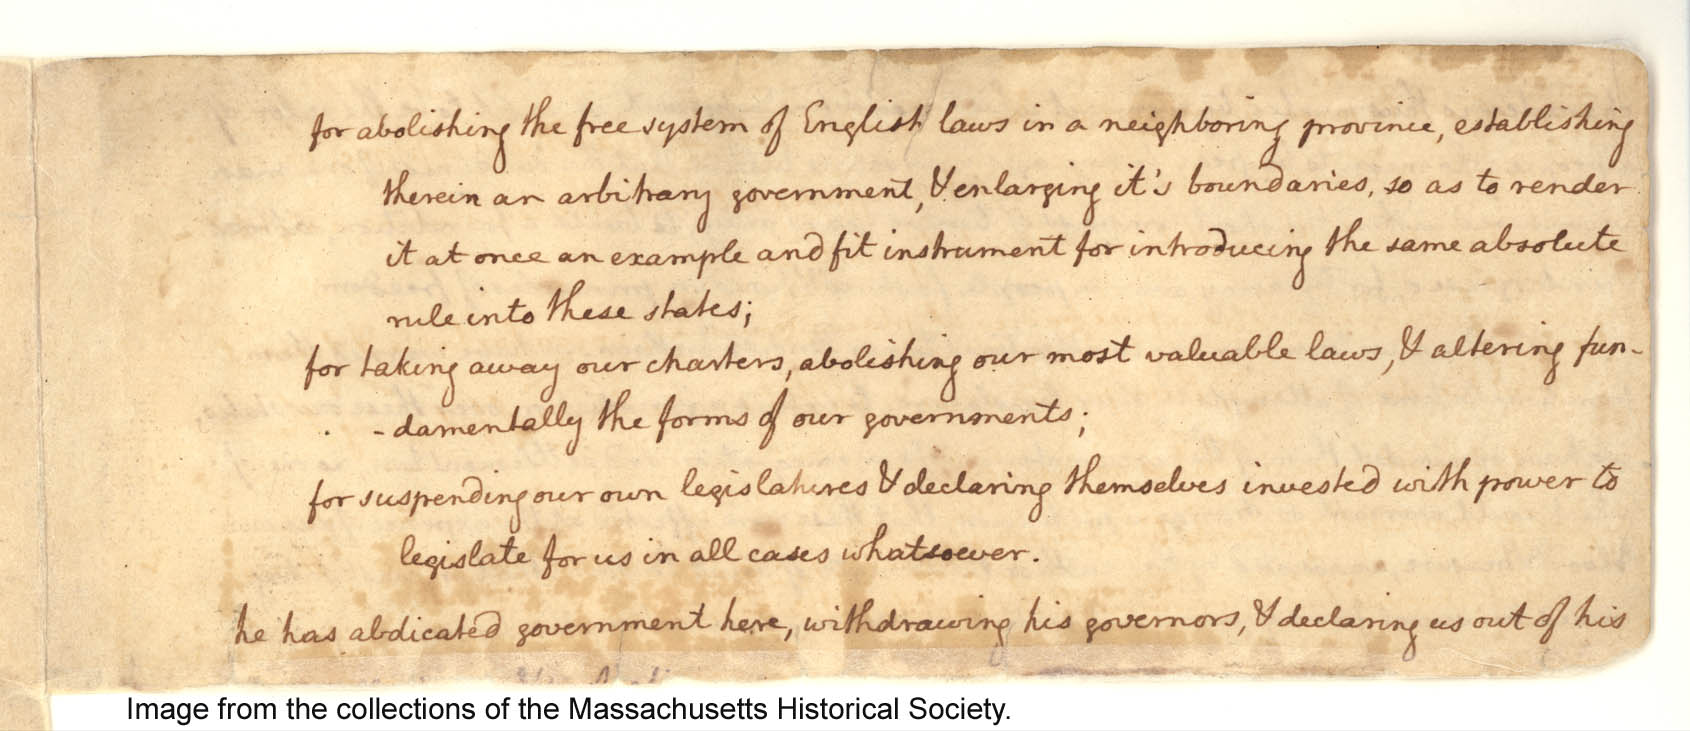 for abolishing the free system of English laws in a neighboring province, establishing
therein an arbitrary government, & enlarging it's boundaries, so as to render
it at once an example and fit instrument for introducing the same absolute
rule into these states;
for taking away our charters, abolishing our most valuable laws, & altering fun-
-damentally the forms of our governments;
for suspending our own legislatures & declaring themselves invested with power to
legislate for us in all cases whatsoever.
he has abdicated government here, withdrawing his governors, & declaring us out of his
Image from the collections of the Massachusetts Historical Society.